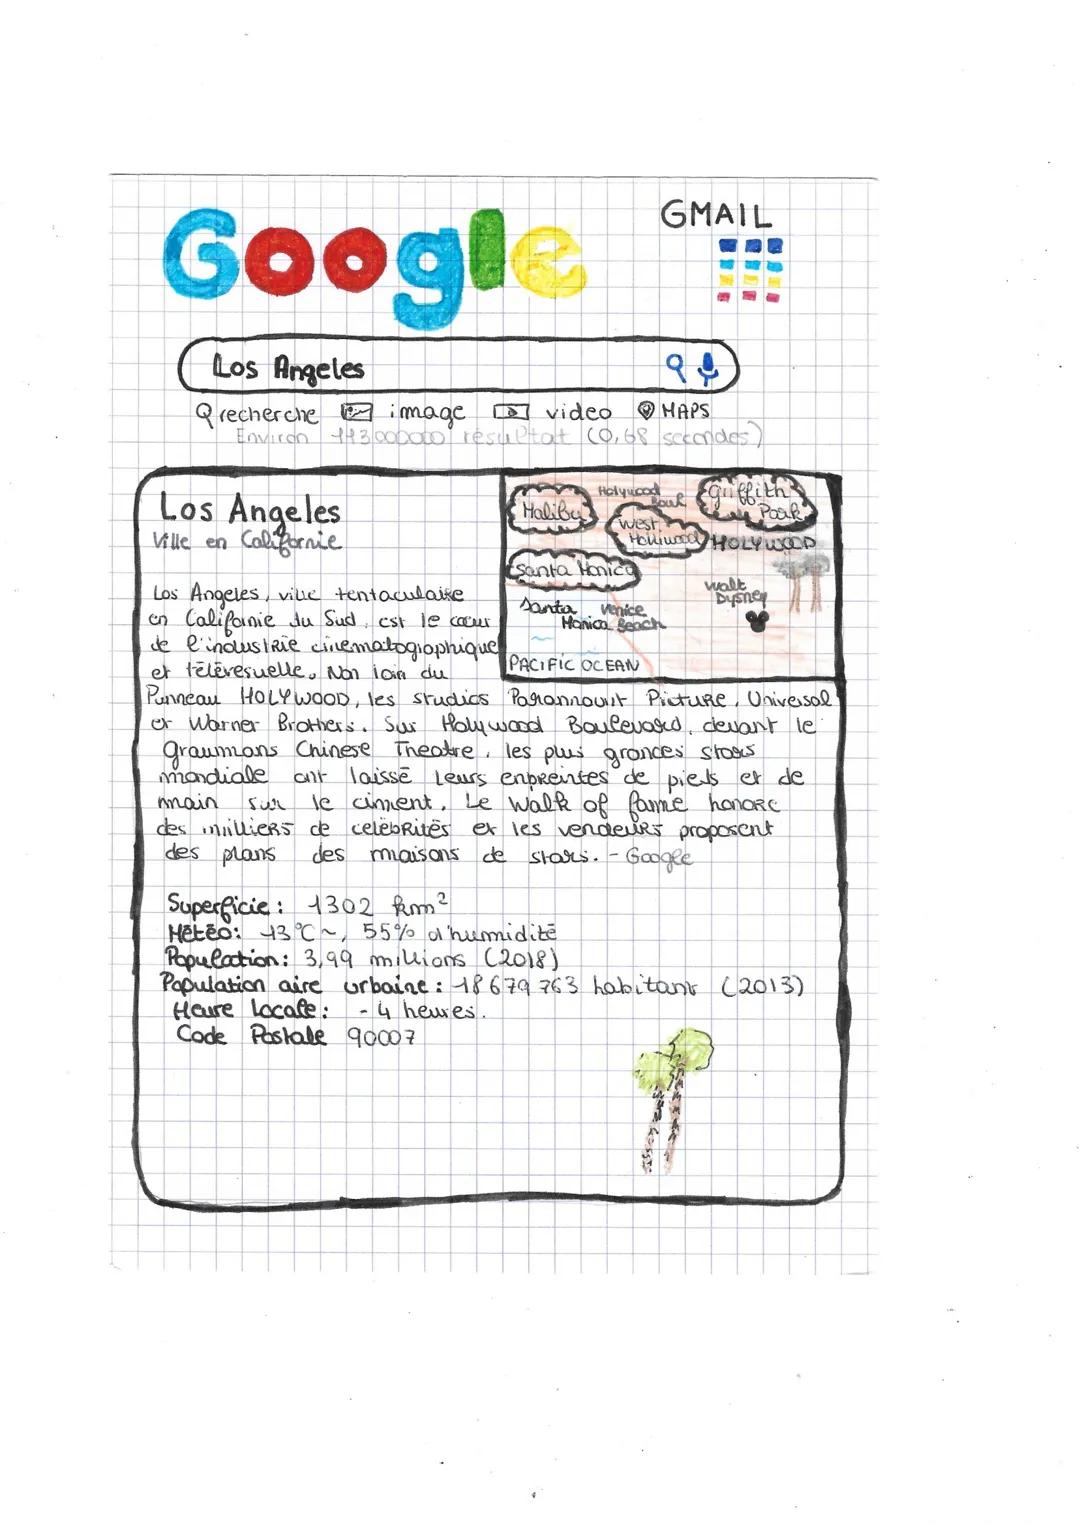 Google
GMAIL
Los Angeles
recherche image video MAPS
Environ 113000000 résultat (0,68 secondes)
Los Angeles
Ville en Californie
Malibu
Holywood Boul
Griffith Park
West Holliwood
HOLYWOOD
Santa Monica
Walt Dysney
Santa Monica
Venice Beach
PACIFIC OCEAN
Los Angeles, ville tentaculaire
en Califonie du Sud, est le cœur
de l'industrie cinematographique
et télévesuelle. Non loin du
Punneau HOLYWOOD, les studios Parannount Picture, Universal
et Warner Brothers. Sur Holywood Boulevard, devant le
graumans Chinese Theatre, les plus grances stars
mondiale ont laissé leurs enpreintes de pieds et de
main sur le ciment. Le Walk of fame honore
des milliers de célébrités et les vendeurs proposent
des plans des maisons de stars. - Google
Superficie : 1302 km²
Météo : 13°C ~, 55% d'humidité
Population : 3,99 millions (2018)
Population aire urbaine : 18 679 763 habitant (2013)
Heure locale : - 4 heures.
Code Postale 90007